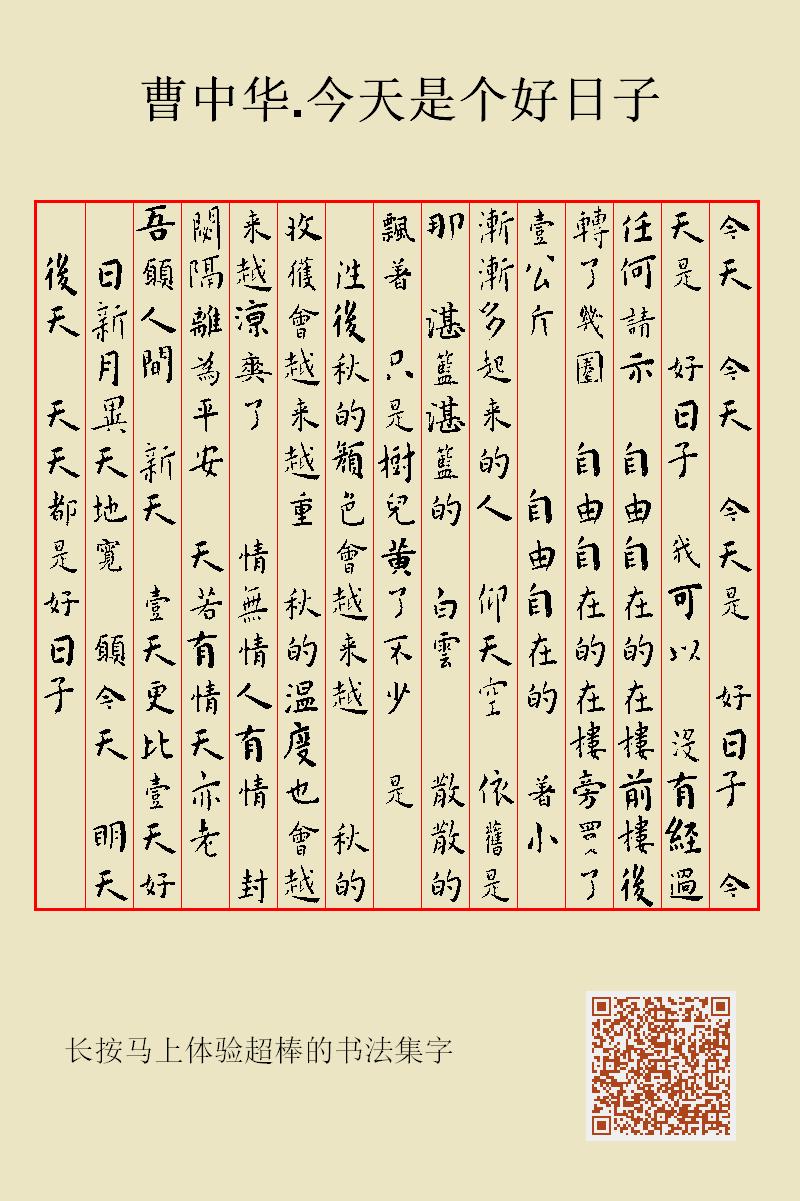 曹中华.今天是个好日子
今天 今天 今天是 好日子 今
天是 好日子 我可以 沒有經過
任何請示 自由自在的在樓前樓後
轉了幾圈 自由自在的在樓旁買了
壹公斤 自由自在的 著小
漸漸多起来的人 仰天空 依舊是
那 湛籃湛籃的 白雲 散散的
飄著 只是樹兒黄了不少 是
往後秋的顏色會越来越 秋的
收獲會越来越重 秋的温度也會越
来越涼爽了 情無情人有情 封
閟隔離為平安 天若有情天亦老
吾願人間 新天 壹天更比壹天好
日新月異天地寬 願今天 明天
後天 天天都是好日子
长按马上体验超棒的书法集字